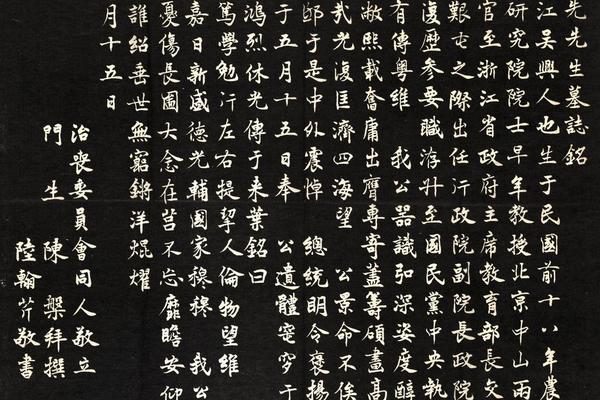 先先生墓誌銘
江吳興人也生于民國前十八年農
研究院院士早年教授北京中山兩
官至浙江省政府主席教育部長交
艱屯之際出任行政院副院長政院
復歷參要職游升至國民黨中央執
有傳粵維 我公器識弘深姿度醇
敝熙載奮庸出膺專寄蓋籌碩畫高
弐光復匡濟四海望 公景命不俟
邸于是中外震悼 總統明令褒揚
于五月十五日奉 公遺體窆穸于
鴻烈休光傳于來葉銘曰
篤學勉行左右提挈人倫物望維
嘉日新盛德光輔國家穆穆 我公
憂傷長圖大念在莒不忘靡瞻安仰
誰紹垂世無窮鏘洋焜燿
月十五日
治喪委員會同人敬立
門生 陳槃拜撰
陸翰芹敬書